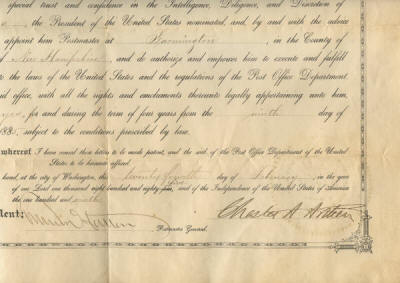 special trust and confidence in the Intelligence, Diligence, and Discretion of
the President of the United States nominated, and, by and with the advice
appoint him Postmaster at Farmington, in the County of
New Hampshire, and do authorize and empower him to execute and fulfill
to the laws of the United States and the regulations of the Post Office Department
said office, with all the rights and emoluments thereunto legally appertaining unto him,
for and during the term of four years from the ninth day of
188, subject to the conditions prescribed by law.
whereof I have caused these letters to be made patent, and the seal of the Post Office Department of the United
States to be hereunto affixed.
hand, at the city of Washington, the twenty day of February, in the year
of our Lord one thousand eight hundred and eighty, and of the Independence of the United States of America
the one hundred and ninth
dent:
Chester A Arthur
Postmaster General.